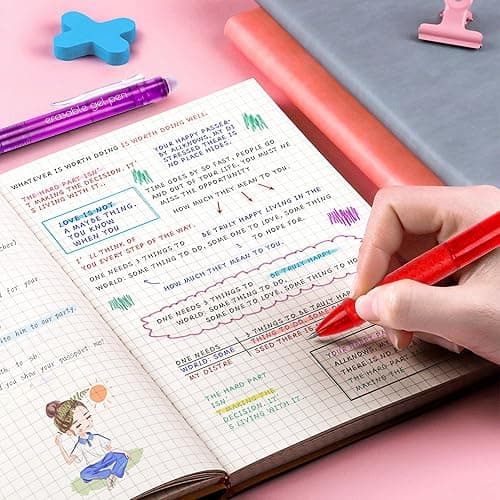 erasable gel pen
WHATEVER IS WORTH DOING IS WORTH DOING WELL.
THE HARD PART ISN'
T MAKING THE DECISION, IT'
S LIVING WITH IT..
YOUR HAPPY PASSER-
ALLKNOWS, MY DI
STRESSED THERE IS
NO PLACE HIDES.
LOVE IS NOT
A MAYBE THING.
YOU KNOW
WHEN YOU
TIME GOES BY SO FAST, PEOPLE GO
AND OUT OF YOUR LIFE, YOU MUST NE
MISS THE OPPORTUNITY
HOW MUCH THEY MEAN TO YOU.
I' LL THINK OF
YOU EVERY STEP OF THE WAY.
BE TRULY HAPPY LIVING IN THE
ONE NEEDS 3 THINGS TO
WORLD: SOME THING TO DO, SOME ONE TO LOVE, SOME THING
TO HOPE FOR.
HOW MUCH THEY MEAN TO YOU.
BE TRULY HAPPY
ONE NEEDS 3 THINGS TO
WORLD: SOME THING TO DO, SOME THING TO HO
SOME ONE TO LOVE, SOME THING
ONE NEEDS
WORLD: SOME
MY DISTRE
3 THINGS TO BE TRULY HAPP
THING TO DO, SOME
SSED THERE IS
ALLKNOWS, MY
THERE IS
NO PLACE HID
MAKING THE
THE HARD PART
ISN'
T MAKING THE
DECISION, IT'
S LIVING WITH IT
for your
ite him to our party.
th, to sb.
d you show your passport me!